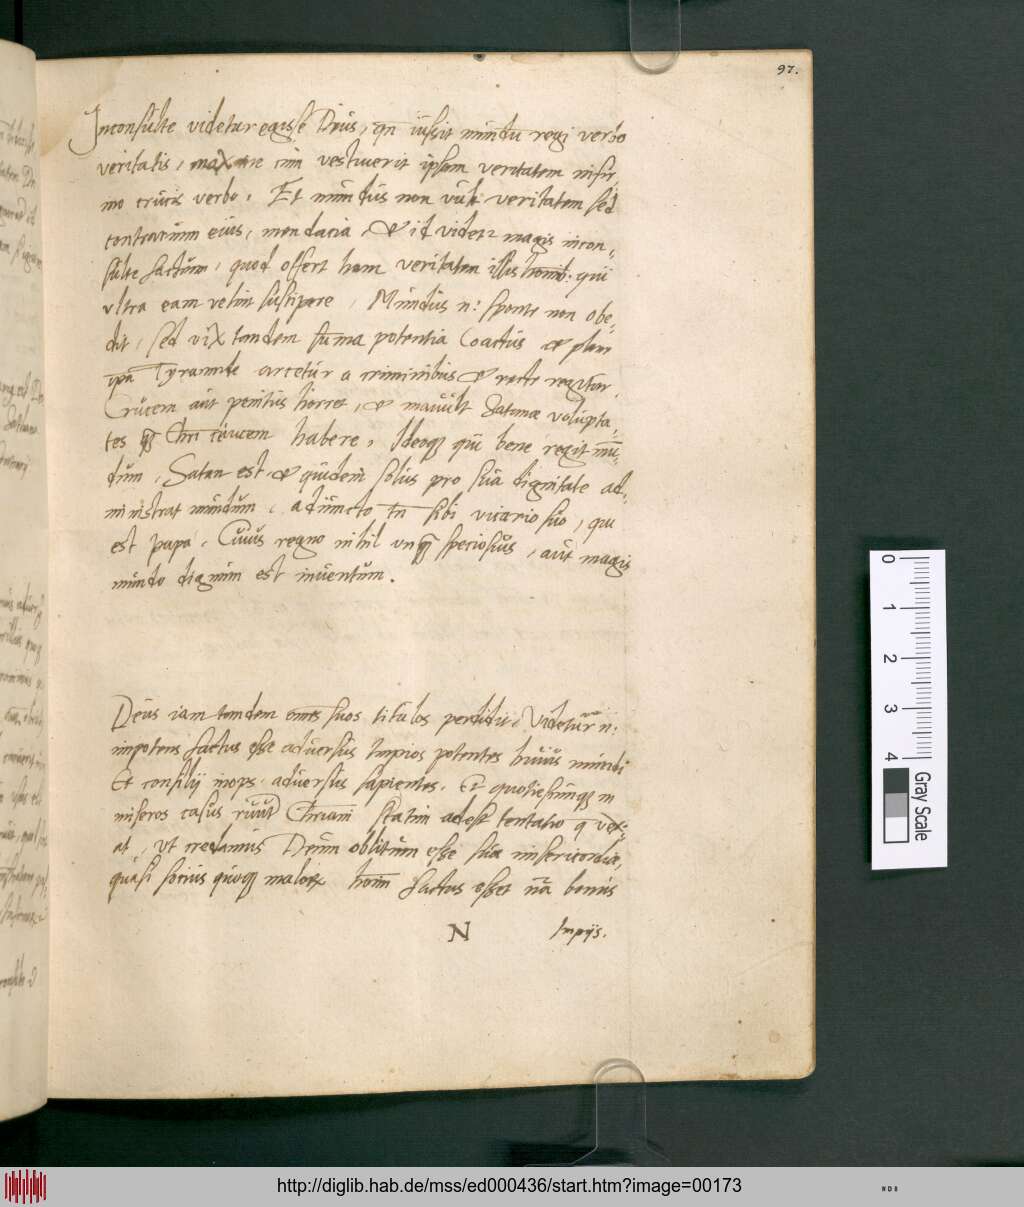 97.
Inconsulte videtur egisse Deus, qn iussit mundu regi verbo
veritatis, maxime cum vestiuerit ipsam veritatem infir,
mo crucis verbo. Et mundus non vult veritatem sed
contrarium eius, mendacia, & id videtr magis incon,
sulte factum, quod offert hanc veritatem illis homib: qui
ultra eam velint suscipere, Mundus n: sponte non obe,
dit, sed vix tandem summa potentia Coactus & plane
ipa Tyrannide arcetur a criminibus & recte regitur,
Crucem aut penitus horret, & mauult Satanae volupta,
tes q Chri crucem habere, Ideoq qui bene regit mu,
dum, Satan est, & quidem solus pro sua dignitate ad,
ministrat mundum, adiuncto tn sibi vicario suo, qui
est papa. Cuius regno nihil unq speciosius, aut magis
mundo dignum est inuentum.
Deus iam tandem omes suos titulos perdidit, Videtur n:
impotens factus esse aduersus Impios potentes huius mundi
Et consilij inops, aduersus sapientes. Et quotiescunq in
miseros casus ruunt Chriani statim adest tentatio q vex,
at, ut credamus Deum oblitum esse suae misericordiae,
quasi socius quoq malor homin factus esset na bonus
N Impijs.
0 1 2 3 4
Gray Scale
http://diglib.hab.de/mss/ed000436/start.htm?image=00173